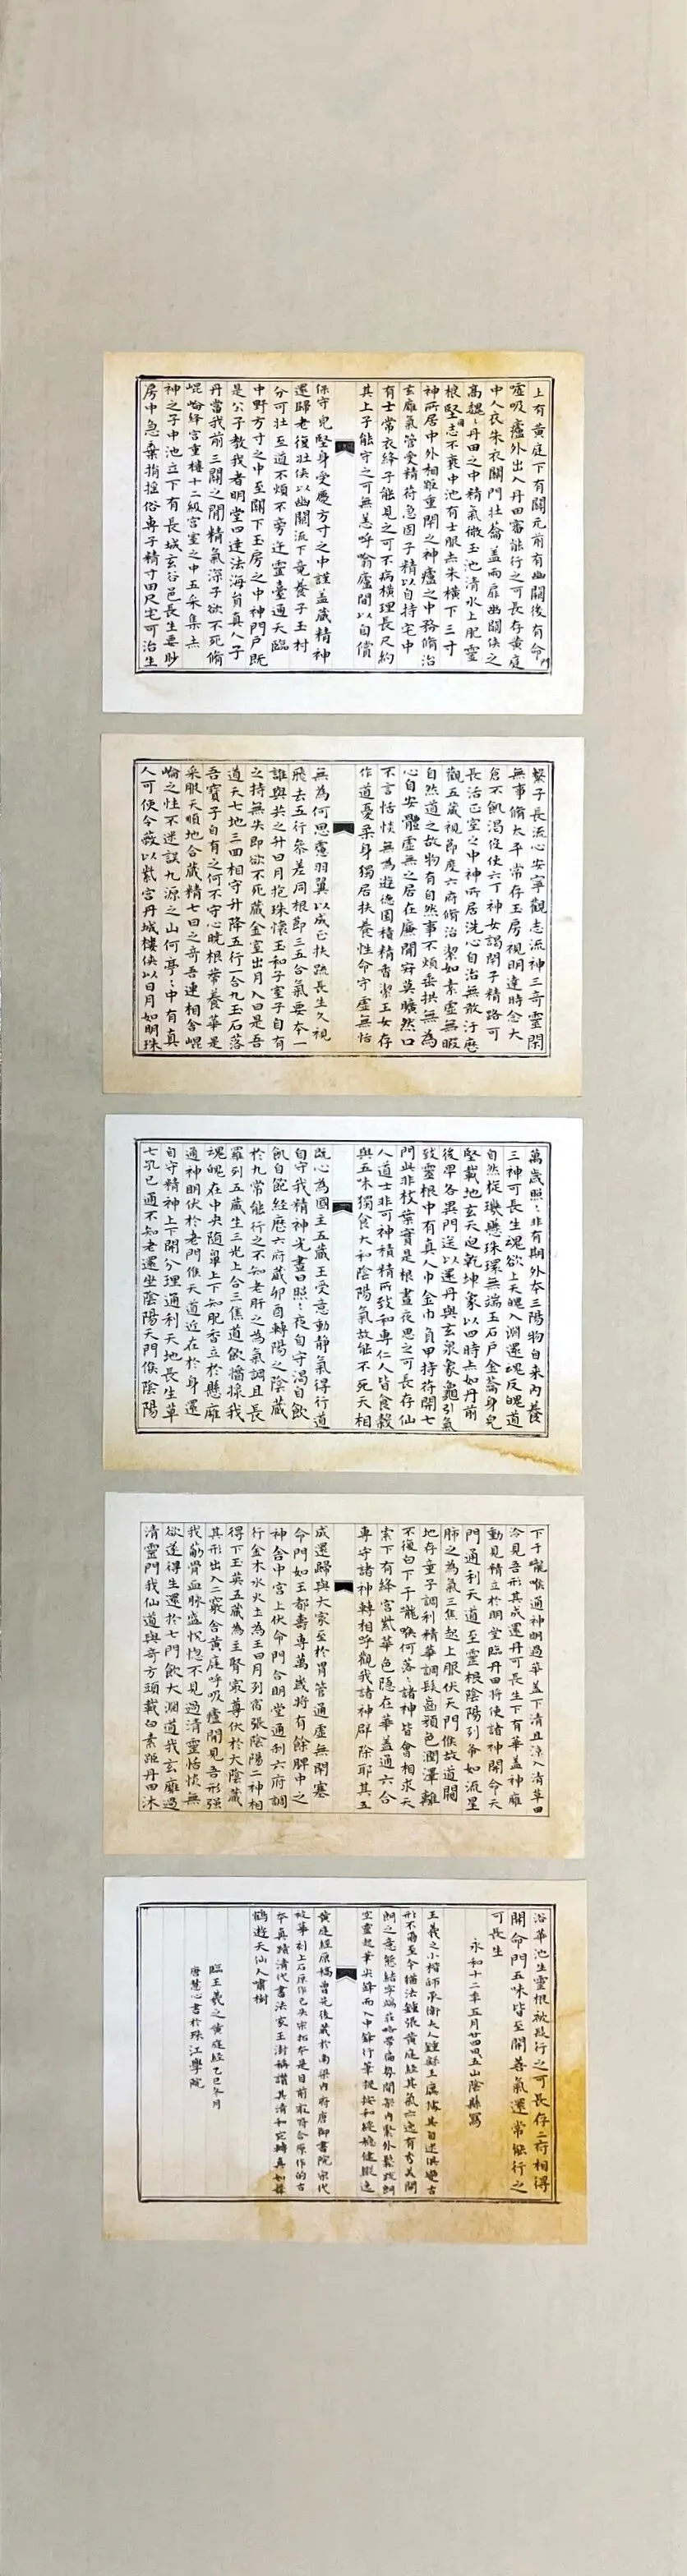 上有黃庭下有關元前有幽關後有命門
噓吸廬外出入丹田審能行之可長存黃庭
中人衣朱衣關門壯籥蓋兩扉幽關俠之
高巍巍丹田之中精氣微玉池清水上肥靈
根堅志不衰中池有士服赤朱橫下三寸
神所居中外相距重閉之神廬之中務脩治
玄廱氣管受精符急固子精以自持宅中
有士常衣絳子能見之可不病橫理長尺約
其上子能守之可無恙呼噏廬間以自償
保守完堅身受慶方寸之中謹蓋藏精神
還歸老復壯俠以幽闕流下竟養子玉樹
令可壯至道不煩不旁迕靈臺通天臨
中野方寸之中至關下玉房之中神門戶既
是公子教我者明堂四達法海員真人子
丹當我前三關之間精氣深子欲不死脩
崐崘絳宮重樓十二級宮室之中五采集赤
神之子中池立下有長城玄谷邑長生要眇
房中急棄捐搖俗專子精寸田尺宅可治生
繫子長流心安寧觀志流神三奇靈閑
無事脩太平常存玉房視明達時念大
倉不飢渴役使六丁神女謁閉子精路可
長活正室之中神所居洗心自治無敢汙歷
觀五藏視節度六府脩治潔如素虛無
自然道之故物有自然事不煩垂拱無為
心自安體虛無之居在廉間寂莫曠然口
不言恬惔無為遊德園積精香潔玉女存
作道憂柔身獨居扶養性命守虛無恬
無為何思慮羽翼以成正扶疏長生久視
飛去五行參差同根節三五合氣要本一
誰與共之升日月抱珠懷玉和子室子自有
之持無失即欲不死藏金室出月入日是吾
道天七地三回相守升降五行一合九玉石落
吾寶子自有之何不守心曉根蔕養華采
服天順地合藏精七日之奇吾連相合崐
崘之性不迷誤九源之山何亭亭中有真
人可使令蔽以紫宮丹城樓俠以日月如明珠
萬歲照照非有期外本三陽物自來內養
三神可長生魂欲上天魄入淵還魂反魄道
自然旋璣懸珠環無端玉石戶金籥身完
堅載地玄天迫乾坤象以四時赤如丹前
後卑各異門送以還丹與玄泉象龜引氣
致靈根中有真人巾金巾負甲持符開七
門此非枝葉實是根晝夜思之可長存仙
人道士非可神積精所致和專仁人皆食穀
與五味獨食大和陰陽氣故能不死天相
既心為國主五藏王受意動靜氣得行道
自守我精神光晝日照照夜自守渴自飲
飢自飽經歷六府藏卯酉轉陽之陰藏
於九常能行之不知老肝之為氣調且長
羅列五藏生三光上合三焦道飲醬漿我
魂魄在中央隨鼻上下知肥香立於懸廱
通神明伏於老門候天道近在於身還
自守精神上下開分理通利天地長生草
七孔已通不知老還坐陰陽天門候陰陽
下于嚨喉通神明過華蓋下清且涼入清草田
冷見吾形其成還丹可長生下有華蓋神廱
動見精立於明堂臨丹田將使諸神開命
門通利天道至靈根陰陽列布如流星
肺之為氣三焦起上服伏天門候故道闚
地存童子調利精華調髮齒顏色潤澤
不復白下于嚨喉何落落諸神皆會相求
索下有絳宮紫華色隱在華蓋通六合
專守諸神轉相呼觀我諸神辟除耶其五
成還歸與大家至於胃管通虛無閉塞
命門如玉都壽專萬歲將有餘脾中之
神舍中宮上伏命門合明堂通利六府調
行金木水火土為王日月列宿張陰陽二神相
得下玉英五藏為主腎最尊伏於大陰藏
其形出入二竅舍黃庭呼吸廬間見吾形強
我筋骨血脉盛恍惚不見過清靈恬惔無
欲遂得生還於七門飲大淵道我玄廱過
清靈門我仙道與奇方頭載白素距丹田沐
浴華池生靈根被髮行之可長存二府相得
開命門五味皆至開善氣還常能行之
可長生
永和十二年五月廿四日五山陰縣寫
王羲之小楷師承衛夫人鍾繇王廙
黃庭經原稿曾先後藏於南梁內府唐御書院宋代
故事刻上石原作已失宋拓本是目前最符合原作的古
本真蹟清代書法家王澍稱讚其清和宛轉真如舞
鶴遊天仙人嘯樹
臨王羲之黃庭經乙巳年月
唐慧心書於珠江學院